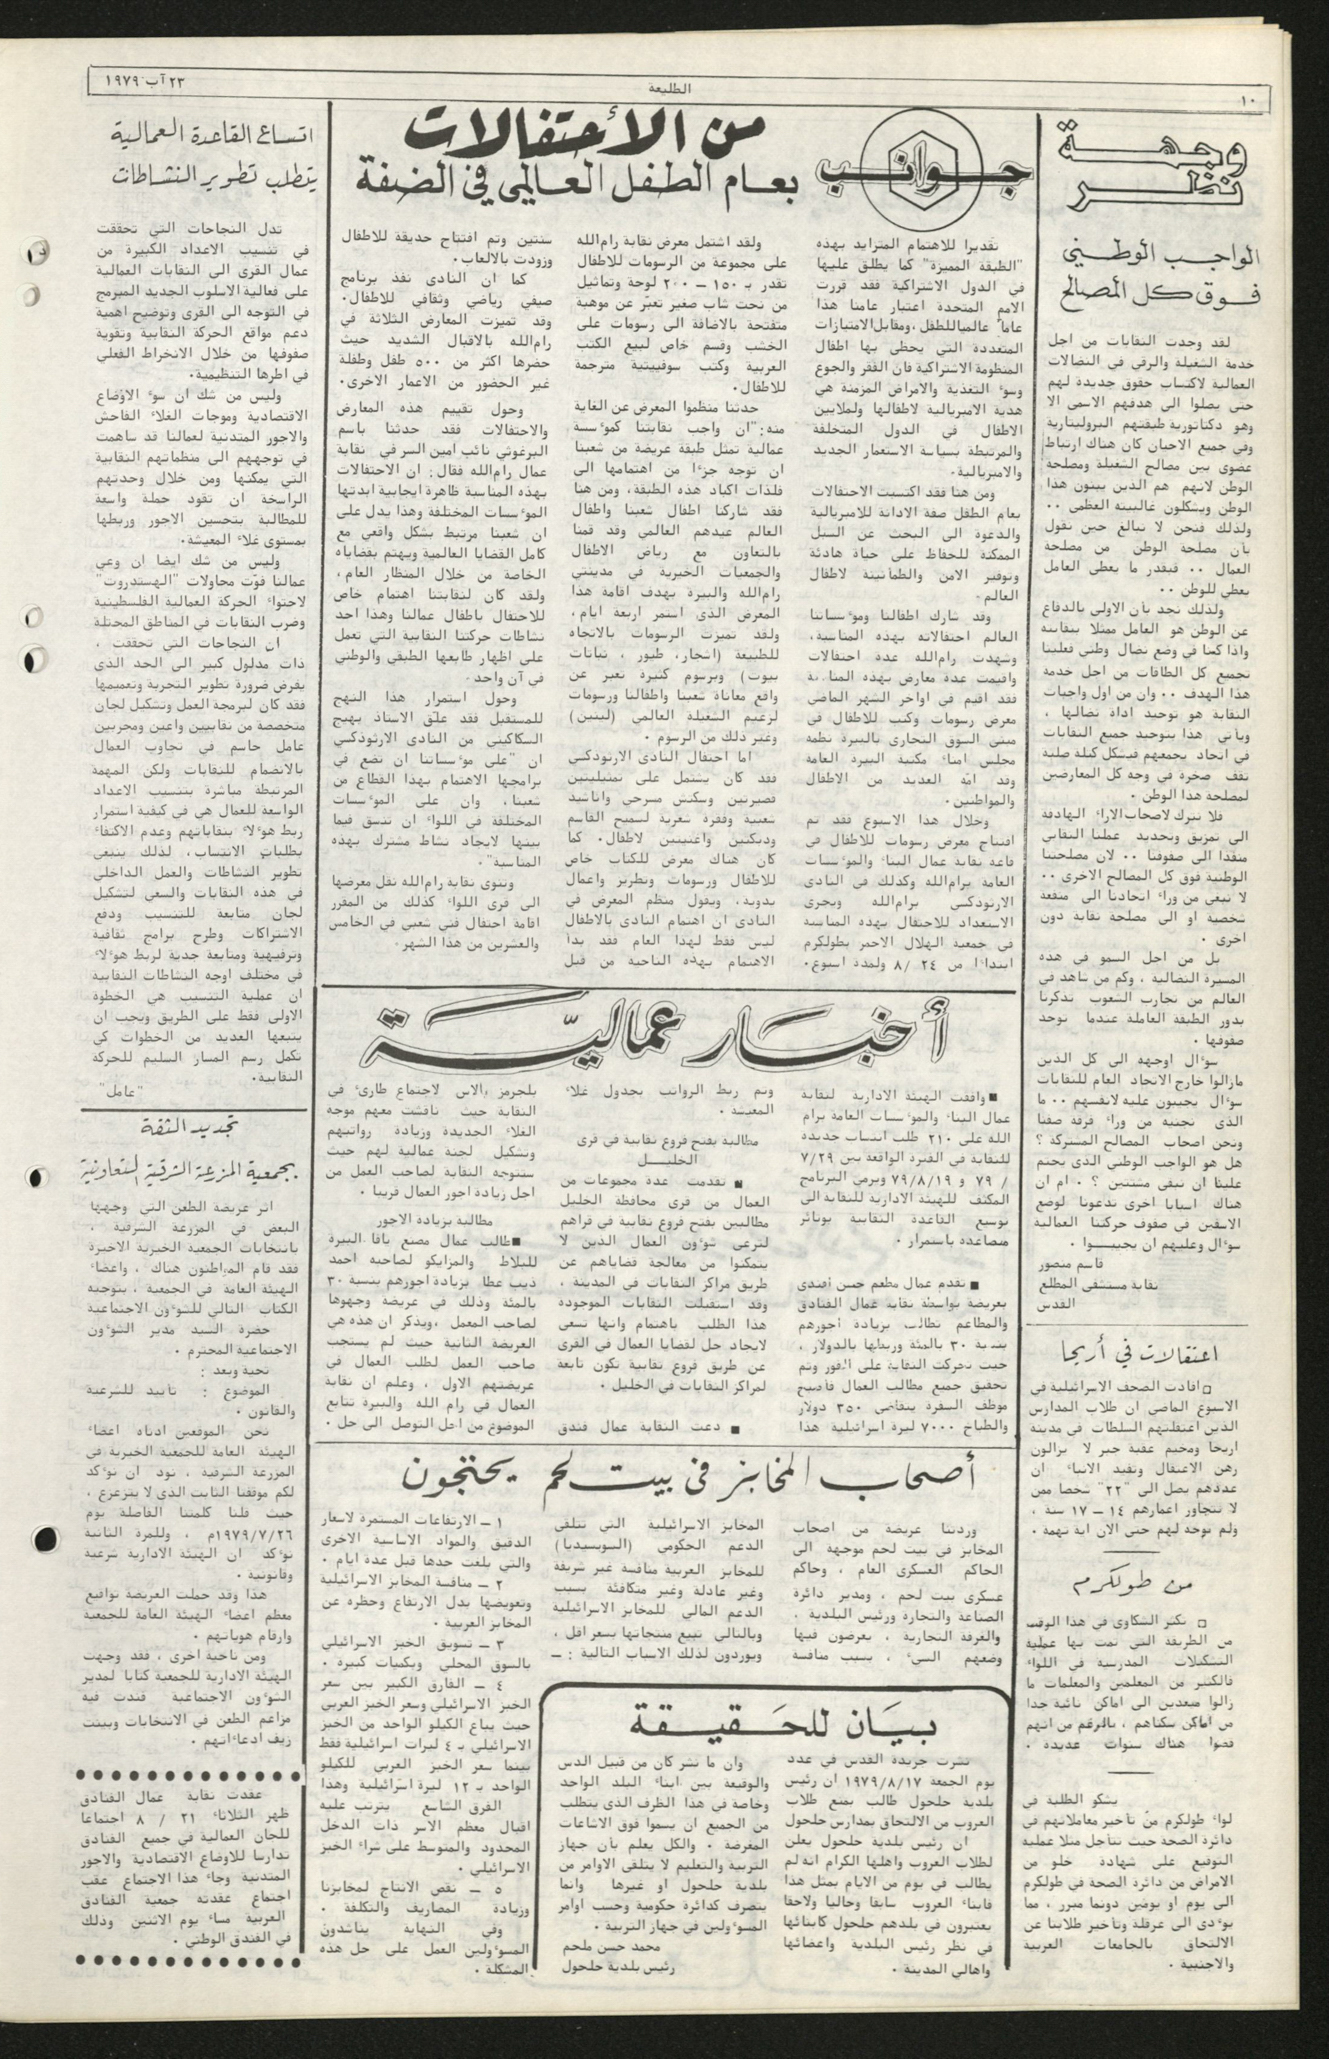 ١٠
الطليعة
٢٣ آب ١٩٧٩
وجهة
نظر
الواجب الوطني
فوق كل المصالح
لقد وجدت النقابات من اجل
خدمة الشغيلة والرقي في النضالات
العمالية لاكتساب حقوق جديدة لهم
حتى يصلوا الى هدفهم الاسمى الا
وهو دكتاتورية طبقتهم البروليتارية
وفي جميع الاحيان كان هناك ارتباط
عضوي بين مصالح الشغيلة ومصلحة
الوطن لانهم هم الذين يبنون هذا
الوطن ويشكلون غالبيته العظمى ٠٠
ولذلك فنحن لا نبالغ حين نقول
بأن مصلحة الوطن من مصلحة
العمال ٠٠ فبقدر ما يعطى العامل
يعطي للوطن ٠٠
ولذلك نجد بأن الاولى بالدفاع
عن الوطن هو العامل ممثلا بنقابته
واذا كنا في وضع نضال وطني فعلينا
تجميع كل الطاقات من اجل خدمة
هذا الهدف ٠٠ وان من اول واجبات
النقابة هو توحيد اداة نضالها ،
ويأتي هذا بتوحيد جميع النقابات
في اتحاد يجمعهم فيشكل كتلة صلبة
تقف صخرة في وجه كل المعارضين
لمصلحة هذا الوطن ٠
فلا نترك لاصحاب الاراء الهادفة
الى تمزيق وتحديد عملنا النقابي
منفذا الى صفوفنا ٠٠ لان مصلحتنا
الوطنية فوق كل المصالح الاخرى ٠٠
لا نبغي من وراء اتحادنا الى منفعة
شخصية او الى مصلحة نقابة دون
اخرى ٠
بل من اجل السمو في هذه
المسيرة النضالية ، وكم من شاهد في
العالم من تجارب الشعوب تذكرنا
بدور الطبقة العاملة عندما توحد
صفوفها ٠
سوءال اوجهه الى كل الذين
مازالوا خارج الاتحاد العام للنقابات
سوءال يجيبون عليه لانفسهم ٠٠ ما
الذي نجنيه من وراء فرقة صفنا
ونحن اصحاب المصالح المشتركة ؟
هل هو الواجب الوطني الذي يحتم
علينا ان نبقى مشتتين ؟ ٠ ام ان
هناك اسبابا اخرى تدعونا لوضع
الاسفين في صفوف حركتنا العمالية
سوءال وعليهم ان يجيبـوا ٠
قاسم منصور
نقابة مستشفى المطلع
القدس
اعتقالات في أريحا
□ افادت الصحف الاسرائيلية في
الاسبوع الماضي ان طلاب المدارس
الذين اعتقلتهم السلطات في مدينة
اريحا ومخيم عقبة جبر لا يزالون
رهن الاعتقال وتفيد الانباء ان
عددهم يصل الى "٢٢" شخصا ممن
لا تتجاوز اعمارهم ١٤ ــ ١٧ سنة ،
ولم توجه لهم حتى الان اية تهمة ٠
من طولكرم
□ تكثر الشكاوى في هذا الوقت
من الطريقة التي تمت بها عملية
التشكيلات المدرسية في اللواء
فالكثير من المعلمين والمعلمات ما
زالوا مبعدين الى اماكن نائية جدا
من اماكن سكناهم ، بالرغم من انهم
قضوا هناك سنوات عديدة ٠
يشكو الطلبة في
لواء طولكرم من تأخير معاملاتهم في
دائرة الصحة حيث تتأجل مثلا عملية
التوقيع على شهادة خلو من
الامراض من دائرة الصحة في طولكرم
الى يوم او يومين دونما مبرر ، مما
يوءدى الى عرقلة وتأخير طلابنا عن
الالتحاق بالجامعات العربية
والاجنبية ٠
جوانب
من الأحتفالات
بعام الطفل العالمي في الضفة
تقديرا للاهتمام المتزايد بهذه
"الطبقة المميزة" كما يطلق عليها
في الدول الاشتراكية فقد قررت
الامم المتحدة اعتبار عامنا هذا
عاما عالمياللطفل، ومقابل الامتيازات
المتعددة التي يحظى بها اطفال
المنظومة الاشتراكية فان الفقر والجوع
وسوء التغذية والامراض المزمنة هي
هدية الامبريالية لاطفالها ولملايين
الاطفال في الدول المتخلفة
والمرتبطة بسياسة الاستعمار الجديد
والامبريالية٠
ومن هنا فقد اكتسبت الاحتفالات
بعام الطفل صفة الادانة للامبريالية
والدعوة الى البحث عن السبل
الممكنة للحفاظ على حياة هادئة
وتوفير الامن والطمأنينة لاطفال
العالم٠
وقد شارك اطفالنا وموءسساتنا
العالم احتفالاته بهذه المناسبة،
وشهدت رام الله عدة احتفالات
واقيمت عدة معارض بهذه المناسبة
فقد اقيم في اواخر الشهر الماضي
معرض رسومات وكتب للاطفال في
مبنى السوق التجارى بالبيرة نظمه
مجلس امناء مكتبة البيرة العامة
وقد امّه العديد من الاطفال
والمواطنين٠
وخلال هذا الاسبوع فقد تم
افتتاح معرض رسومات للاطفال في
قاعة نقابة عمال البناء والموءسسات
العامة برام الله وكذلك في النادى
الارثوذكسي برام الله ويجرى
الاستعداد للاحتفال بهذه المناسبة
في جمعية الهلال الاحمر بطولكرم
ابتداءا من ٢٤ /٨ ولمدة اسبوع٠
ولقد اشتمل معرض نقابة رام الله
على مجموعة من الرسومات للاطفال
تقدر بـ ١٥٠ ــ ٢٠٠ لوحة وتماثيل
من نحت شاب صغير تعبّر عن موهبة
متفتحة بالاضافة الى رسومات على
الخشب وقسم خاص لبيع الكتب
العربية وكتب سوفييتية مترجمة
للاطفال٠
حدثنا منظموا المعرض عن الغاية
منه: "ان واجب نقابتنا كموءسسة
عمالية تمثل طبقة عريضة من شعبنا
ان توجه جزءا من اهتمامها الى
فلذات اكباد هذه الطبقة، ومن هنا
فقد شاركنا اطفال شعبنا واطفال
العالم عيدهم العالمي وقد قمنا
بالتعاون مع رياض الاطفال
والجمعيات الخيرية في مدينتي
رام الله والبيرة بهدف اقامة هذا
المعرض الذى استمر اربعة ايام،
ولقد تميزت الرسومات بالاتجاه
للطبيعة (اشجار، طيور ، نباتات
بيوت) وبرسوم كثيرة تعبر عن
واقع معاناة شعبنا واطفالنا ورسومات
لزعيم الشغيلة العالمي (لينين)
وغير ذلك من الرسوم ٠
اما احتفال النادى الارثوذكسي
فقد كان يشتمل على تمثيليتين
قصيرتين وسكتش مسرحي واناشيد
شعبية وفقرة شعرية لسميح القاسم
ودبكتين واغنيتين لاطفال٠ كما
كان هناك معرض للكتاب خاص
للاطفال ورسومات وتطريز واعمال
يدوية، ويقول منظم المعرض في
النادى ان اهتمام النادى بالاطفال
ليس فقط لهذا العام فقد بدأ
الاهتمام بهذه الناحية من قبل
سنتين وتم افتتاح حديقة للاطفال
وزودت بالالعاب٠
كما ان النادى نفذ برنامج
صيفي رياضي وثقافي للاطفال٠
وقد تميزت المعارض الثلاثة في
رام الله بالاقبال الشديد حيث
حضرها اكثر من ٥٠٠ طفل وطفلة
غير الحضور من الاعمار الاخرى٠
وحول تقييم هذه المعارض
والاحتفالات فقد حدثنا باسم
البرغوثي نائب امين السر في نقابة
عمال رام الله فقال: ان الاحتفالات
بهذه المناسبة ظاهرة ايجابية ابدتها
الموءسسات المختلفة وهذا يدل على
ان شعبنا مرتبط بشكل واقعي مع
كامل القضايا العالمية ويهتم بقضاياه
الخاصة من خلال المنظار العام،
ولقد كان لنقابتنا اهتمام خاص
للاحتفال باطفال عمالنا وهذا احد
نشاطات حركتنا النقابية التي تعمل
على اظهار طابعها الطبقي والوطني
في آن واحد٠
وحول استمرار هذا النهج
للمستقبل فقد علّق الاستاذ بهيج
السكاكيني من النادى الارثوذكسي
ان "على موءسساتنا ان تضع في
برامجها الاهتمام بهذا القطاع من
شعبنا، وان على الموءسسات
المختلفة في اللواء ان تنسق فيما
بينها لايجاد نشاط مشترك بهذه
المناسبة"٠
وتنوى نقابة رام الله نقل معرضها
الى قرى اللواء كذلك من المقرر
اقامة احتفال فني شعبي في الخامس
والعشرين من هذا الشهر٠
أخبار عماليّة
■ وافقت الهيئة الادارية لنقابة
عمال البناء والموءسسات العامة برام
الله على ٢١٠ طلب انتساب جديدة
للنقابة في الفترة الواقعة بين ٧/٢٩
/ ٧٩ و ٧٩/٨/١٩ ويرمي البرنامج
المكثف للهيئة الادارية للنقابة الى
توسيع القاعدة النقابية بوتائر
متصاعدة باستمرار ٠
■ تقدم عمال مطعم حسن افندي
بعريضة بواسطة نقابة عمال الفنادق
والمطاعم تطالب بزيادة اجورهم
بنسبة ٣٠ بالمئة وربطها بالدولار ،
حيث تحركت النقابة على الفور وتم
تحقيق جميع مطالب العمال فأصبح
موظف السفرة يتقاضى ٣٥٠ دولار
والطباخ ٧٠٠٠ ليرة اسرائيلية هذا
وتم ربط الرواتب بجدول غلاء
المعيشة ٠
مطالبة بفتح فروع نقابية في قرى
الخليــل
■ تقدمت عدة مجموعات من
العمال من قرى محافظة الخليل
مطالبين بفتح فروع نقابية في قراهم
لترعى شوءون العمال الذين لا
يتمكنوا من معالجة قضاياهم عن
طريق مراكز النقابات في المدينة ،
وقد استقبلت النقابات الموجودة
هذا الطلب باهتمام وانها تسعى
لايجاد حل لقضايا العمال في القرى
عن طريق فروع نقابية تكون تابعة
لمراكز النقابات في الخليل ٠
■ دعت النقابة عمال فندق
بلجرمز بالاس لاجتماع طارىء في
النقابة حيث ناقشت معهم موجة
الغلاء الجديدة وزيادة رواتبهم
وتشكيل لجنة عمالية لهم حيث
ستتوجه النقابة لصاحب العمل من
اجل زيادة اجور العمال قريبا ٠
مطالبة بزيادة الاجور
■ طالب عمال مصنع يافا البيرة
للبلاط والمزايكو لصاحبه احمد
ذيب عطا بزيادة اجورهم بنسبة ٣٠
بالمئة وذلك في عريضة وجهوها
لصاحب المعمل ، ويذكر ان هذه هي
العريضة الثانية حيث لم يستجب
صاحب العمل لطلب العمال في
عريضتهم الاول ، وعلم ان نقابة
العمال في رام الله والبيرة تتابع
الموضوع من اجل التوصل الى حل ٠
أصحاب المخابز في بيت لحم يحتجون
وردتنا عريضة من اصحاب
المخابز في بيت لحم موجهة الى
الحاكم العسكرى العام ، وحاكم
عسكرى بيت لحم ، ومدير دائرة
الصناعة والتجارة ورئيس البلدية ،
والغرفة التجارية ، يعرضون فيها
وضعهم السيء ، بسبب منافسة
المخابز الاسرائيلية التي تتلقى
الدعم الحكومي (السوبسيديا)
للمخابز العربية منافسة غير شريفة
وغير عادلة وغير متكافئة بسبب
الدعم المالي للمخابز الاسرائيلية
وبالتالي تبيع منتجاتها بسعر اقل ،
ويوردون لذلك الاسباب التالية : ــ
١ ــ الارتفاعات المستمرة لاسعار
الدقيق والمواد الاساسية الاخرى
والتي بلغت حدها قبل عدة ايام ٠
٢ ــ منافسة المخابز الاسرائيلية
وتعويضها بدل الارتفاع وحظره عن
المخابز العربية ٠
٣ ــ تسويق الخبز الاسرائيلي
بالسوق المحلي وبكميات كبيرة ٠
٤ ــ الفارق الكبير بين سعر
الخبز الاسرائيلي وسعر الخبز العربي
حيث يباع الكيلو الواحد من الخبز
الاسرائيلي بـ ٤ ليرات اسرائيلية فقط
بينما سعر الخبز العربي للكيلو
الواحد بـ ١٢ ليرة اسرائيلية وهذا
الفرق الشاسع يترتب عليه
اقبال معظم الاسر ذات الدخل
المحدود والمتوسط على شراء الخبز
الاسرائيلي ٠
٥ ــ نقص الانتاج لمخابزنا
وزيادة المصاريف والتكلفة ٠
وفي النهاية يناشدون
المسوءولين العمل على حل هذه
المشكلة ٠
بيَان للحَقيقة
نشرت جريدة القدس في عدد
يوم الجمعة ١٩٧٩/٨/١٧ ان رئيس
بلدية حلحول طالب بمنع طلاب
العروب من الالتحاق بمدارس حلحول
ان رئيس بلدية حلحول يعلن
لطلاب العروب واهلها الكرام انه لم
يطالب في يوم من الايام بمثل هذا
فابناء العروب سابقا وحاليا ولاحقا
يعتبرون في بلدهم حلحول كابنائها
في نظر رئيس البلدية واعضائها
واهالي المدينة ٠
وان ما نشر كان من قبيل الدس
والوقيعة بين ابناء البلد الواحد
وخاصة في هذا الظرف الذى يتطلب
من الجميع ان يسموا فوق الاشاعات
المغرضة ٠ والكل يعلم بأن جهاز
التربية والتعليم لا يتلقى الاوامر من
بلدية حلحول او غيرها وانما
يتصرف كدائرة حكومية وحسب اوامر
المسوءولين في جهاز التربية ٠
محمد حسن ملحم
رئيس بلدية حلحول
اتساع القاعدة العمالية
يتطلب تطوير النشاطات
تدل النجاحات التي تحققت
في تنسيب الاعداد الكبيرة من
عمال القرى الى النقابات العمالية
على فعالية الاسلوب الجديد المبرمج
في التوجه الى القرى وتوضيح اهمية
دعم مواقع الحركة النقابية وتقوية
صفوفها من خلال الانخراط الفعلي
في اطرها التنظيمية٠
وليس من شك ان سوء الاوضاع
الاقتصادية وموجات الغلاء الفاحش
والاجور المتدنية لعمالنا قد ساهمت
في توجههم الى منظماتهم النقابية
التي يمكنها ومن خلال وحدتهم
الراسخة ان تقود حملة واسعة
للمطالبة بتحسين الاجور وربطها
بمستوى غلاء المعيشة٠
وليس من شك ايضا ان وعي
عمالنا فوّت محاولات "الهستدروت"
لاحتواء الحركة العمالية الفلسطينية
وضرب النقابات في المناطق المحتلة
ان النجاحات التي تحققت ،
ذات مدلول كبير الى الحد الذى
يفرض ضرورة تطوير التجربة وتعميمها
فقد كان لبرمجة العمل وتشكيل لجان
متخصصة من نقابيين واعين ومجربين
عامل حاسم في تجاوب العمال
بالانضمام للنقابات ولكن المهمة
المرتبطة مباشرة بتنسيب الاعداد
الواسعة للعمال هي في كيفية استمرار
ربط هوءلاء بنقاباتهم وعدم الاكتفاء
بطلبات الانتساب، لذلك ينبغي
تطوير النشاطات والعمل الداخلي
في هذه النقابات والسعي لتشكيل
لجان متابعة للتنسيب ودفع
الاشتراكات وطرح برامج ثقافية
وترفيهية ومتابعة جدية لربط هوءلاء
في مختلف اوجه النشاطات النقابية
ان عملية التنسيب هي الخطوة
الاولى فقط على الطريق ويجب ان
يتبعها العديد من الخطوات كي
تكمل رسم المسار السليم للحركة
النقابية٠
"عامل"
تجديد الثقة
بجمعية المزرعة الشرقية التعاونية
اثر عريضة الطعن التي وجهها
البعض في المزرعة الشرقية ،
بانتخابات الجمعية الخيرية الاخيرة
فقد قام المواطنون هناك ، واعضاء
الهيئة العامة في الجمعية ، بتوجيه
الكتاب التالي للشوءون الاجتماعية
حضرة السيد مدير الشوءون
الاجتماعية المحترم ٠
تحية وبعد :
الموضوع : تأييد للشرعية
والقانون ٠
نحن الموقعين ادناه اعضاء
الهيئة العامة للجمعية الخيرية في
المزرعة الشرقية ، نود ان نوءكد
لكم موقفنا الثابت الذى لا يتزعزع ،
حيث قلنا كلمتنا الفاصلة يوم
١٩٧٩/٧/٢٦م ، وللمرة الثانية
نوءكد ان الهيئة الادارية شرعية
وقانونية ٠
هذا وقد حملت العريضة تواقيع
معظم اعضاء الهيئة العامة للجمعية
وارقام هوياتهم ٠
ومن ناحية اخرى ، فقد وجهت
الهيئة الادارية للجمعية كتابا لمدير
الشوءون الاجتماعية فندت فيه
مزاعم الطعن في الانتخابات وبينت
زيف ادعاءاتهم ٠
عقدت نقابة عمال الفنادق
ظهر الثلاثاء ٢١ / ٨ اجتماعا
للجان العمالية في جميع الفنادق
تدارسا للاوضاع الاقتصادية والاجور
المتدنية وجاء هذا الاجتماع عقب
اجتماع عقدته جمعية الفنادق
العربية مساء يوم الاثنين وذلك
في الفندق الوطني ٠